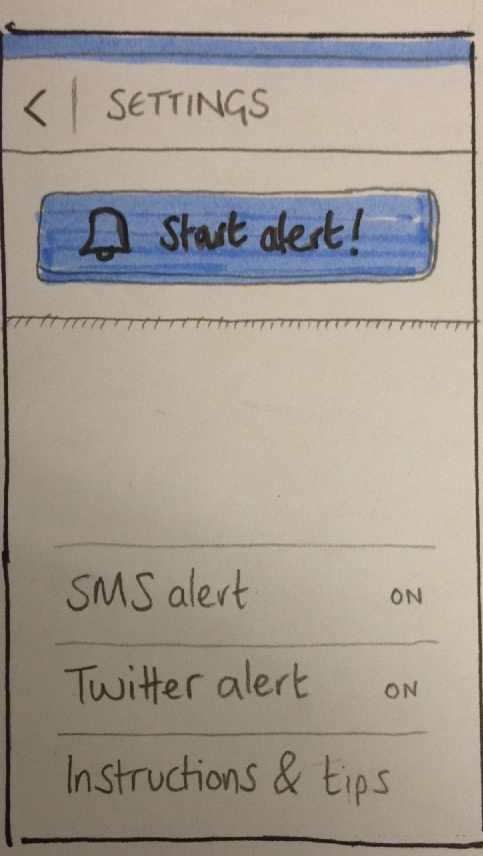 < | SETTINGS
Start alert!
SMS alert ON
Twitter alert ON
Instructions & tips